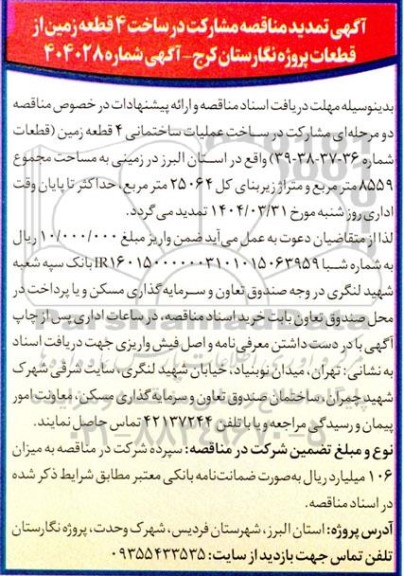 آگهی تمدید مناقصه مشارکت در ساخت ۴ قطعه زمین از
قطعات پروژه نگارستان کرج - آگهی شماره ۴۰۴۰۲۸
بدینوسیله مهلت دریافت اسناد مناقصه و ارائه پیشنهادات در خصوص مناقصه
دو مرحله‌ای مشارکت در ساخت عملیات ساختمانی ۴ قطعه زمین (قطعات
شماره ۳۶-۳۷-۳۸-۳۹) واقع در استان البرز در زمینی به مساحت مجموع
۸۵۵۹ متر مربع و متراژ زیربنای کل ۲۵۰۶۴ متر مربع، حداکثر تا پایان وقت
اداری روز شنبه مورخ ۱۴۰۴/۰۳/۳۱ تمدید می گردد.
لذا از متقاضیان دعوت به عمل می آید ضمن واریز مبلغ ۱۰/۰۰۰/۰۰۰ ریال
به شماره شبا IR۱۶۰۱۵۰۰۰۰۰۰۳۱۰۱۰۱۵۰۶۳۹۵۹ بانک سپه شعبه
شهید لنگری در وجه صندوق تعاون و سرمایه گذاری مسکن و یا پرداخت در
محل صندوق تعاون بابت خرید اسناد مناقصه، در ساعات اداری پس از چاپ
آگهی با در دست داشتن معرفی نامه و اصل فیش واریزی جهت دریافت اسناد
به نشانی: تهران، میدان نوبنیاد، خیابان شهید لنگری، سایت شرقی شهرک
شهید چمران، ساختمان صندوق تعاون و سرمایه گذاری مسکن، معاونت امور
پیمان و رسیدگی مراجعه و یا با تلفن ۴۲۱۳۷۲۴۴ تماس حاصل نمایند.
نوع و مبلغ تضمین شرکت در مناقصه: سپرده شرکت در مناقصه به میزان
۱۰۶ میلیارد ریال به صورت ضمانت نامه بانکی معتبر مطابق شرایط ذکر شده
در اسناد مناقصه.
آدرس پروژه: استان البرز، شهرستان فردیس، شهرک وحدت، پروژه نگارستان
تلفن تماس جهت بازدید از سایت: ۰۹۳۵۵۴۳۳۵۳۵